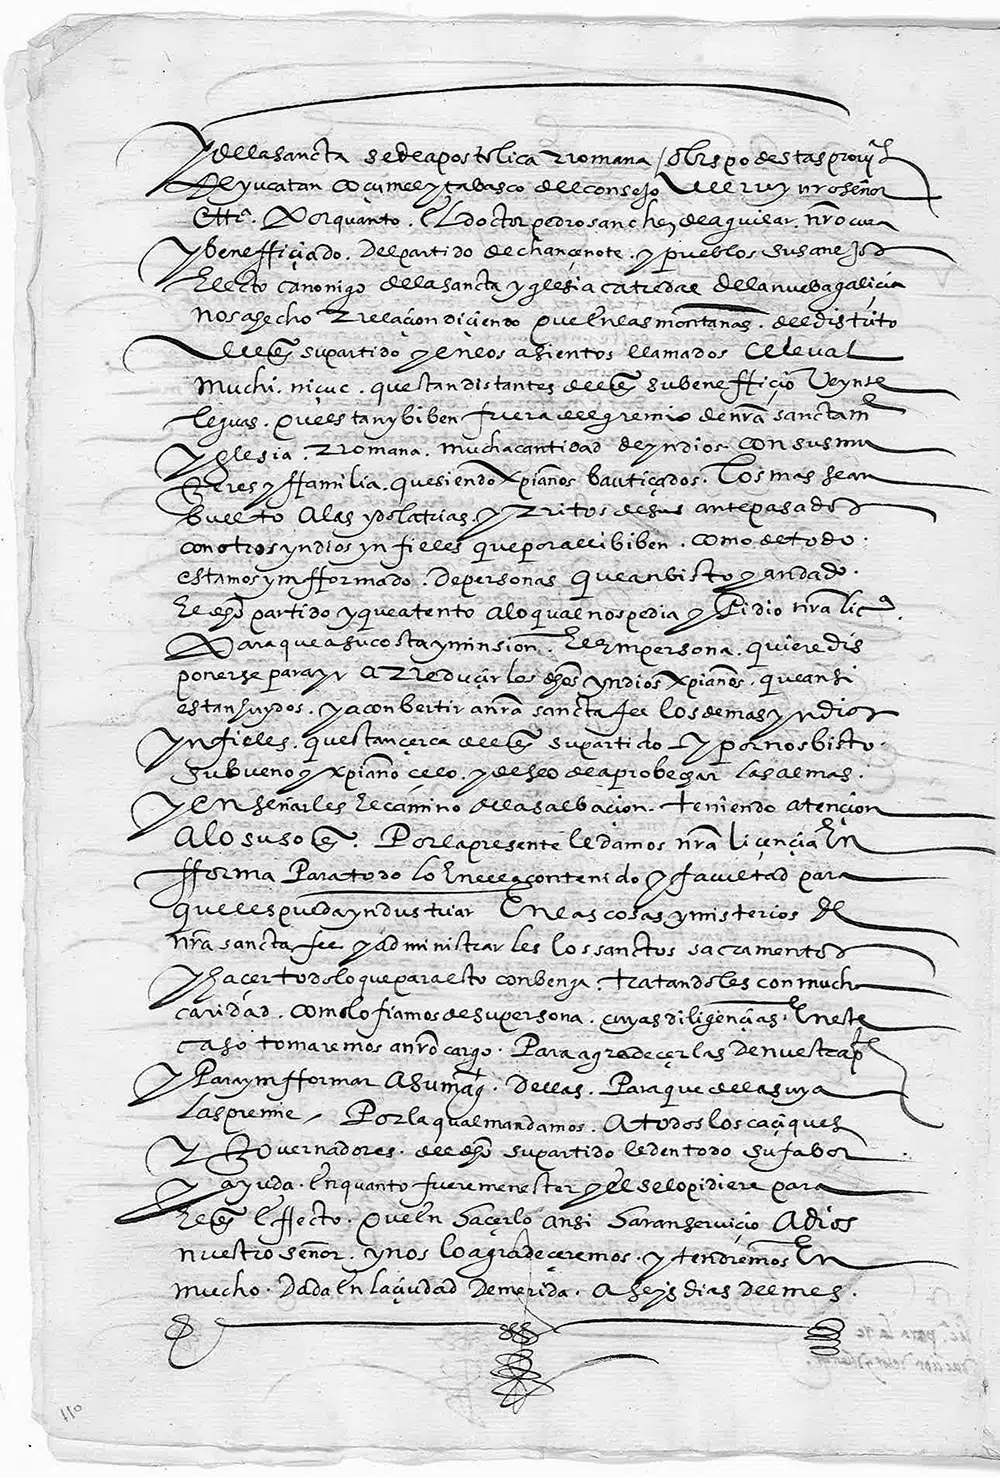 y de la sancta sede apostolica rromana / obispo destas provi
de yucatan coçumel y tabasco del consejo del rey nro señor
ettª. Por quanto. El doctor pedro sanchez de aguilar. nro cura
y benefficiado. del partido de chancenote. y pueblos sus anejos
Electo canonigo de la sancta yglesia catredal de la nueba galicia
nos a hecho rrelacion diciendo que En las montañas. del distrito
del dho su partido y en los asientos llamados
muchi. que stan distantes del dho su benefficio Veynte
leguas. que estan y biben fuera del gremio de nra sancta me
yglesia. rromana. mucha cantidad de yndios. con sus mu
geres y ffamilia. que siendo Xpianos bautiçados. Los mas se an
buelto a las ydolatrias. y rritos de sus antepasados
con otros yndios ynfieles que por alli biben. como de todo.
estamos ymfformado. de personas que an bisto y andado.
El dho partido y que atento a lo qual nos pedia y Pidio nra licª.
Para que a su costa y minsion. El em persona. quiere dis
ponerse para yr a rreducir los dhos yndios Xpianos. que ansi
estan huydos. y a conbertir a nra sancta fee los demas yndios
ynfieles. que stan cerca del dho su partido y por nos bisto.
su bueno y xpiano celo. y deseo de aprobechar las almas.
y enseñarles El camino de la salbacion. teniendo atencion
a lo suso dho. Por la presente le damos nra licencia En
fforma Para todo lo En ella contenido y facultad para
que les pueda yndustriar En las cosas y misterios de
nra sancta fee y administrarles los sanctos sacramentos
y hacer todo lo que para esto conbenga. tratandoles con mucha
caridad. como lo fiamos de su persona. cuyas diligencias. En este
caso tomaremos a nro cargo. Para agradecerlas de nuestra pte
y Para ymfformar a su magd. dellas. Para que de la suya
las premie / Por la qual mandamos. a todos los caciques
y Governadores. del dho su partido le den todo su fabor
y ayuda. En quanto fuere menester y el se lo pidiere para
El dho Effecto. que En hacerlo ansi haran servicio a dios
nuestro señor. y nos lo agradeceremos. y tendremos En
mucho. dada En la ciudad de merida. a seis dias del mes.
110